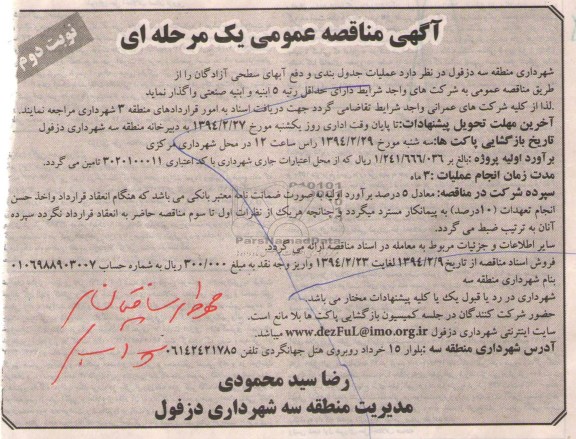 آگهی مناقصه عمومی یک مرحله ای
نوبت دوم
شهرداری منطقه سه دزفول در نظر دارد عملیات جدول بندی و دفع آبهای سطحی آزادگان را از
طریق مناقصه عمومی به شرکت های واجد شرایط دارای حداقل رتبه ۵ ابنیه و ابنیه صنعتی واگذار نماید
.لذا از کلیه شرکت های عمرانی واجد شرایط تقاضامی گردد جهت دریافت اسناد به امور قراردادهای منطقه ۳ شهرداری مراجعه نمایند.
آخرین مهلت تحویل پیشنهادات:تا پایان وقت اداری روز یکشنبه مورخ ۱۳۹۴/۲/۲۷ به دبیرخانه منطقه سه شهرداری دزفول
تاریخ بازگشایی پاکت ها:سه شنبه مورخ ۱۳۹۴/۲/۲۹ راس ساعت ۱۲ در محل شهرداری مرکزی
برآورد اولیه پروژه :بالغ بر ۱/۲۴۱/۶۶۶/۰۳۶ ریال که از محل اعتبارات جاری شهرداری با کد اعتباری ۳۰۲۰۱۰۰۰۱۱ تامین می گردد.
مدت زمان انجام عملیات :۳ ماه
سپرده شرکت در مناقصه: معادل ۵ درصد برآورد اولیه به صورت ضمانت نامه معتبر بانکی می باشد که هنگام انعقاد قرارداد واخذ حسن
انجام تعهدات (۱۰درصد) به پیمانکار مسترد میگردد و چنانچه هریک از نظرات اول تا سوم مناقصه حاضر به انعقاد قرارداد نگردد سپرده
آنان به ترتیب ضبط می گردد.
سایر اطلاعات و جزئیات مربوط به معامله در اسناد مناقصه ارائه می گردد.
فروش اسناد مناقصه از تاریخ ۱۳۹۴/۲/۹ لغایت ۱۳۹۴/۲/۲۳ واریز وجه نقد به مبلغ ۳۰۰/۰۰۰ ریال به شماره حساب ۰۱۰۶۹۸۸۹۰۳۰۰۷
بنام شهرداری منطقه سه
شهرداری در رد یا قبول یک یا کلیه پیشنهادات مختار می باشد.
حضور شرکت کنندگان در جلسه کمیسیون بازگشایی پاکت ها بلا مانع است.
سایت اینترنتی شهرداری دزفول www.dezFuL@imo.org.ir میباشد.
آدرس شهرداری منطقه سه :بلوار ۱۵ خرداد روبروی هتل جهانگردی تلفن ۰۶۱۴۲۴۲۱۷۸۵
رضا سید محمودی
مدیریت منطقه سه شهرداری دزفول
ParsNamadData